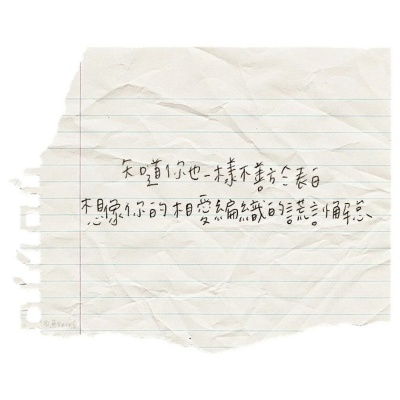 知道你也一樣不善於表白
想像你的相愛編織的謊言懈怠